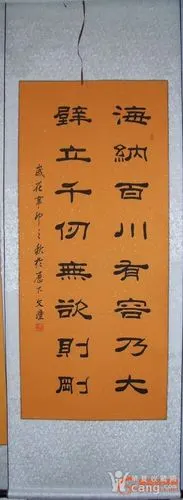 海納百川有容乃大
壁立千仞無欲則剛
歲在辛卯之秋於
cang.com